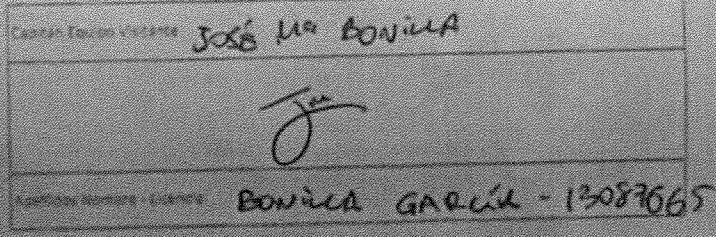 Capitán Equipo Visitante JOSÉ Mª BONILLA
Apellidos Nombre - Licencia BONILLA GARCÍA - 13087665